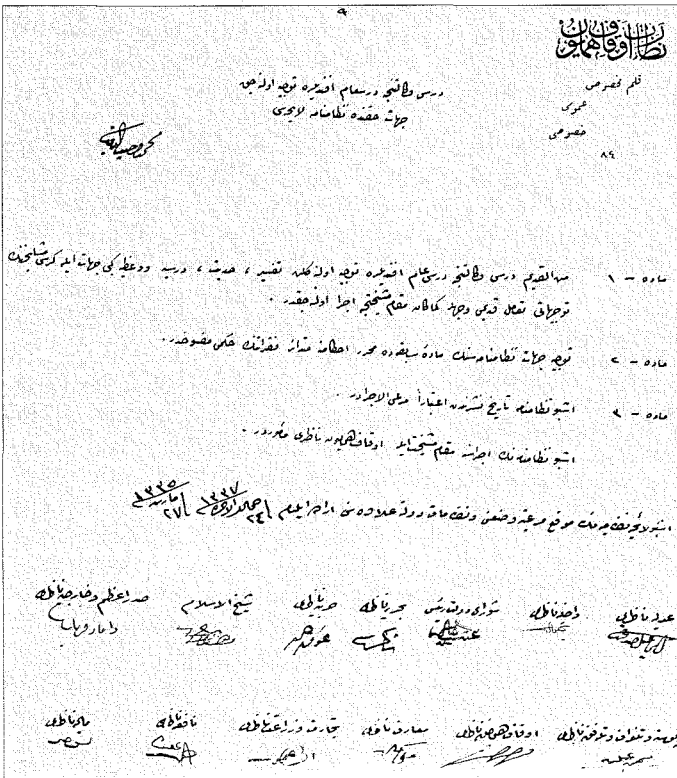 ٩
نظارت اوقاف همايون
قلم مخصوص
عمومى
خصوصى
٨٤
درس وكالتنجه درسعام افنديلره توجيه اولنه جق
جهات حقنده نظامنامه لايحه سى
محمد وحيد الدين
ماده - ١ من القديم درس وكالتنجه درسعام افنديلره توجيه اولنه كلن تفسير ، حديث ، درسيه ووعظيه كبى جهات ايله كرسى مشايخنك
توجهاتى تعامل قديمى وجهله كماكان مقام مشيختجه اجرا اولنه جقدر .
ماده - ٢ توجيه جهات نظامنامه سنك ماده سابقه ده محرر احكامه متدائر فقراتنك حكمى مفسوخدر .
ماده - ٣ اشبو نظامنامه تاريخ نشرندن اعتباراً مرعى الاجرادر .
اشبو نظامنامه نك اجراسنه مقام مشيختله اوقاف همايون ناظرى مأموردر .
اشبو لايحه نظاميه نك موقع مرعيته وضعنى ونظامات دولته علاوه سنى اراده ايلدم
٢٤ جمادى الآخره ١٣٣٧
٢٧ مارت ١٣٣٥
صدر اعظم وخارجيه ناظرى شيخ الاسلام حربيه ناظرى بحريه ناظرى شوراى دولت رئيسى داخليه ناظرى عدليه ناظرى
داماد فريد
ماليه ناظرى نافعه ناظرى تجارت وزراعت ناظرى معارف ناظرى اوقاف همايون ناظرى